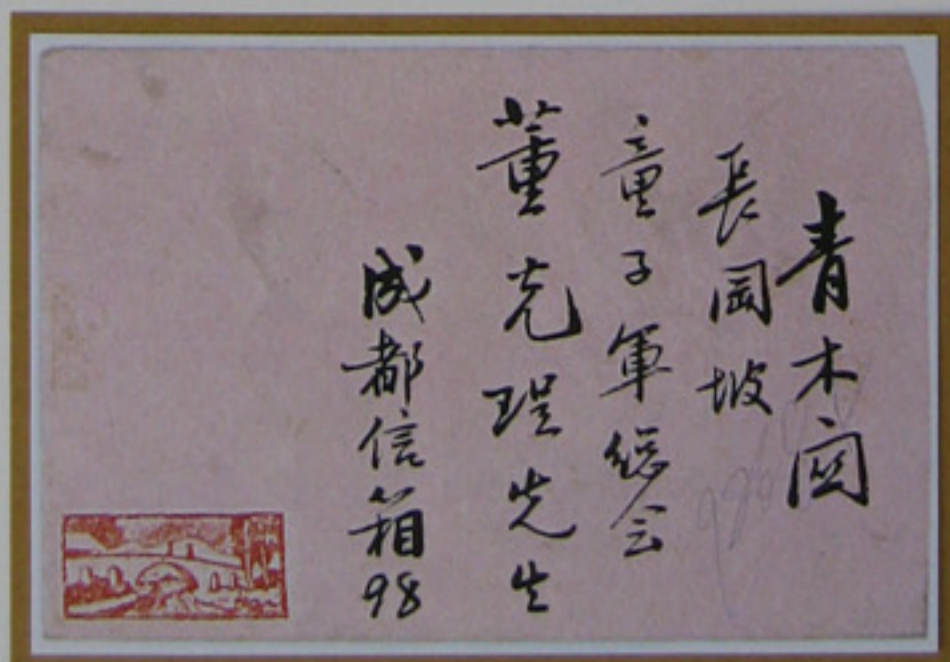 青木関
長岡坡
童子軍總会
董光珵先生
成都信箱98